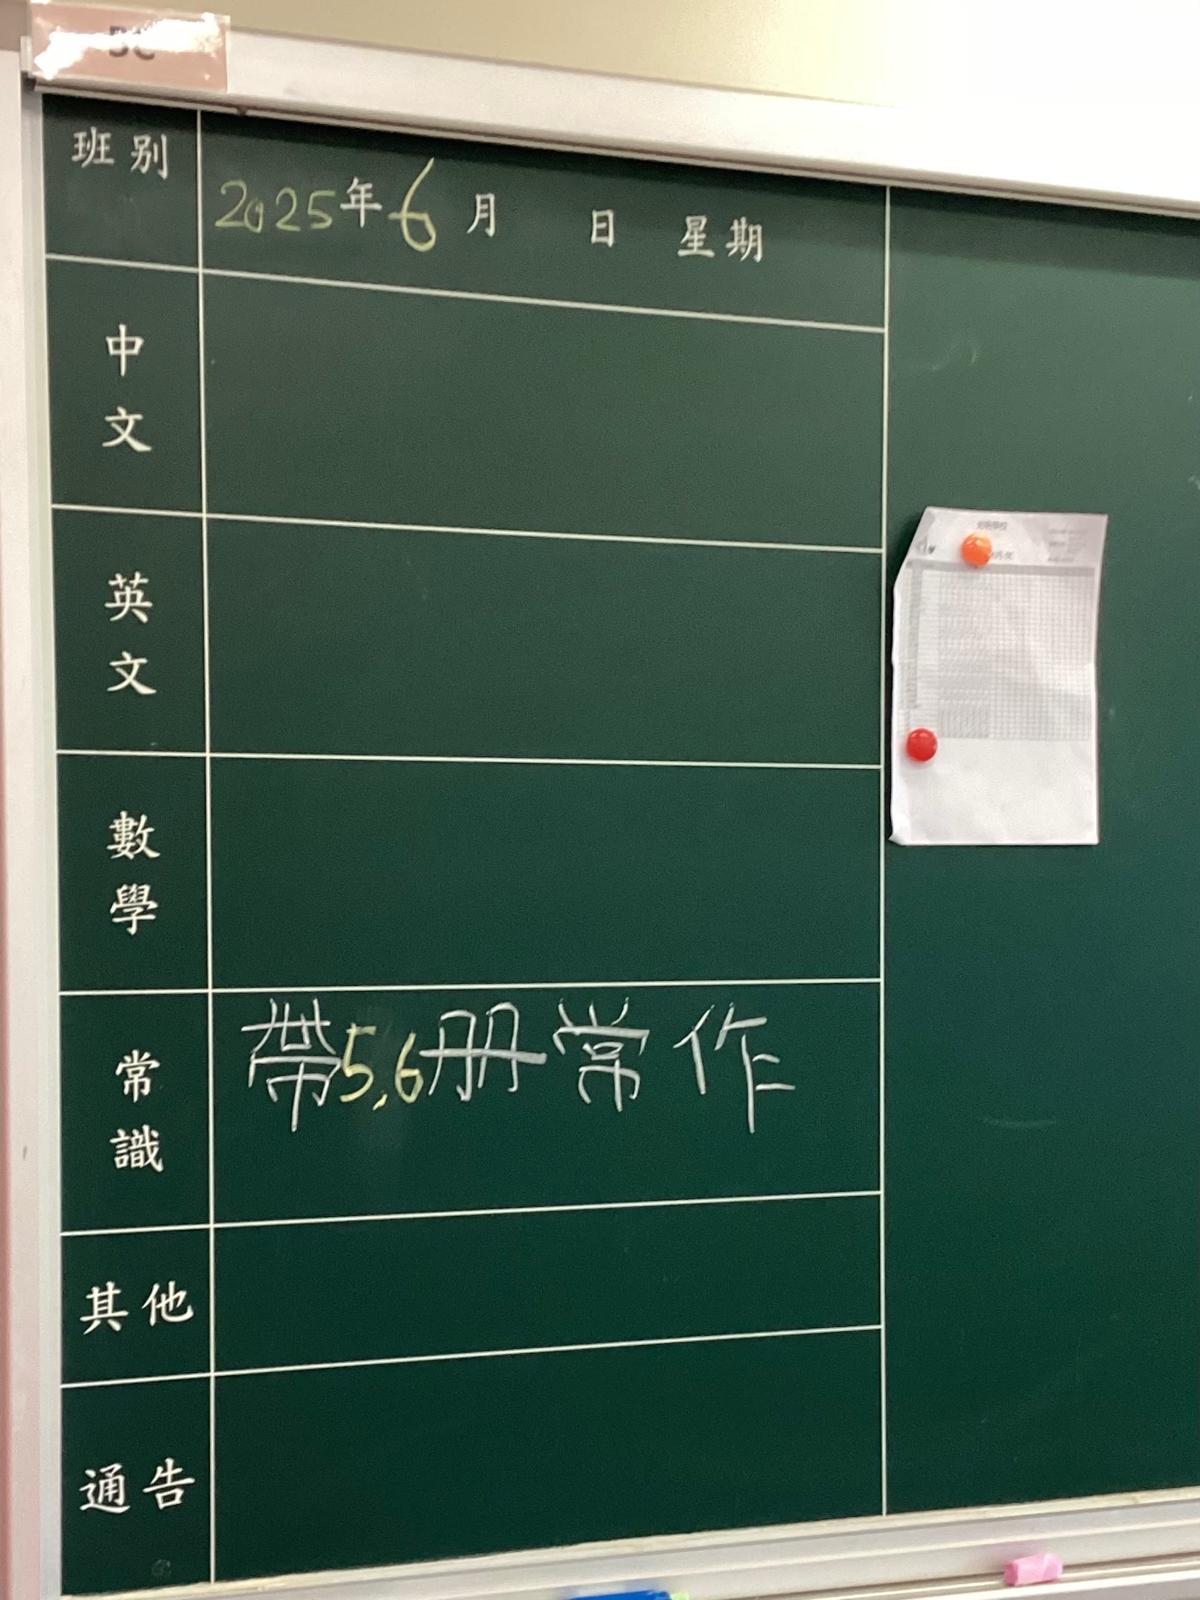 班別
2025年6月 日 星期
中文
英文
數學
常識
帶5,6冊常作
其他
通告